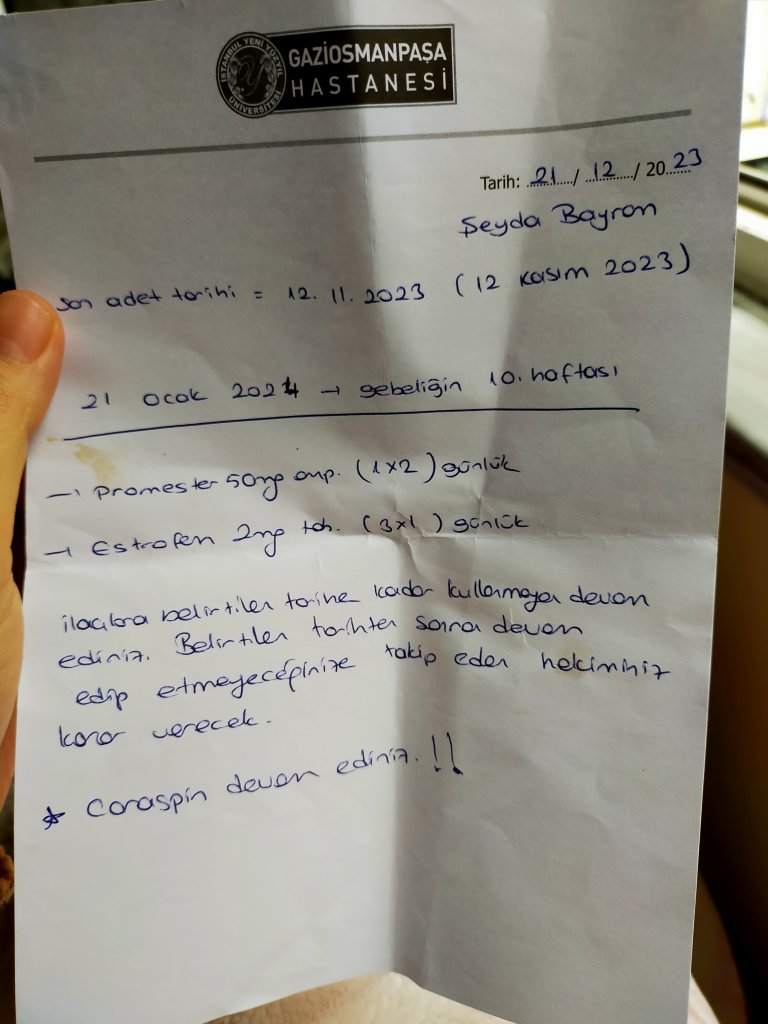 İSTANBUL YENİ YÜZYIL ÜNİVERSİTESİ
GAZİOSMANPAŞA
HASTANESİ
Tarih: 21/12/2023
Şeyda Bayron
Son adet tarihi = 12.11.2023 (12 Kasım 2023)
21 Ocak 2024 → gebeliğin 10. haftası
→ Promester 50mg amp. (1x2) günlük
→ Estrofen 2mg tab. (3x1) günlük
ilaçlara belirtilen tarihe kadar kullanmaya devam
ediniz. Belirtilen tarihten sonra devam
edip etmeyeceğinize takip eden hekiminiz
karar verecek.
* Coraspin devam ediniz.!!